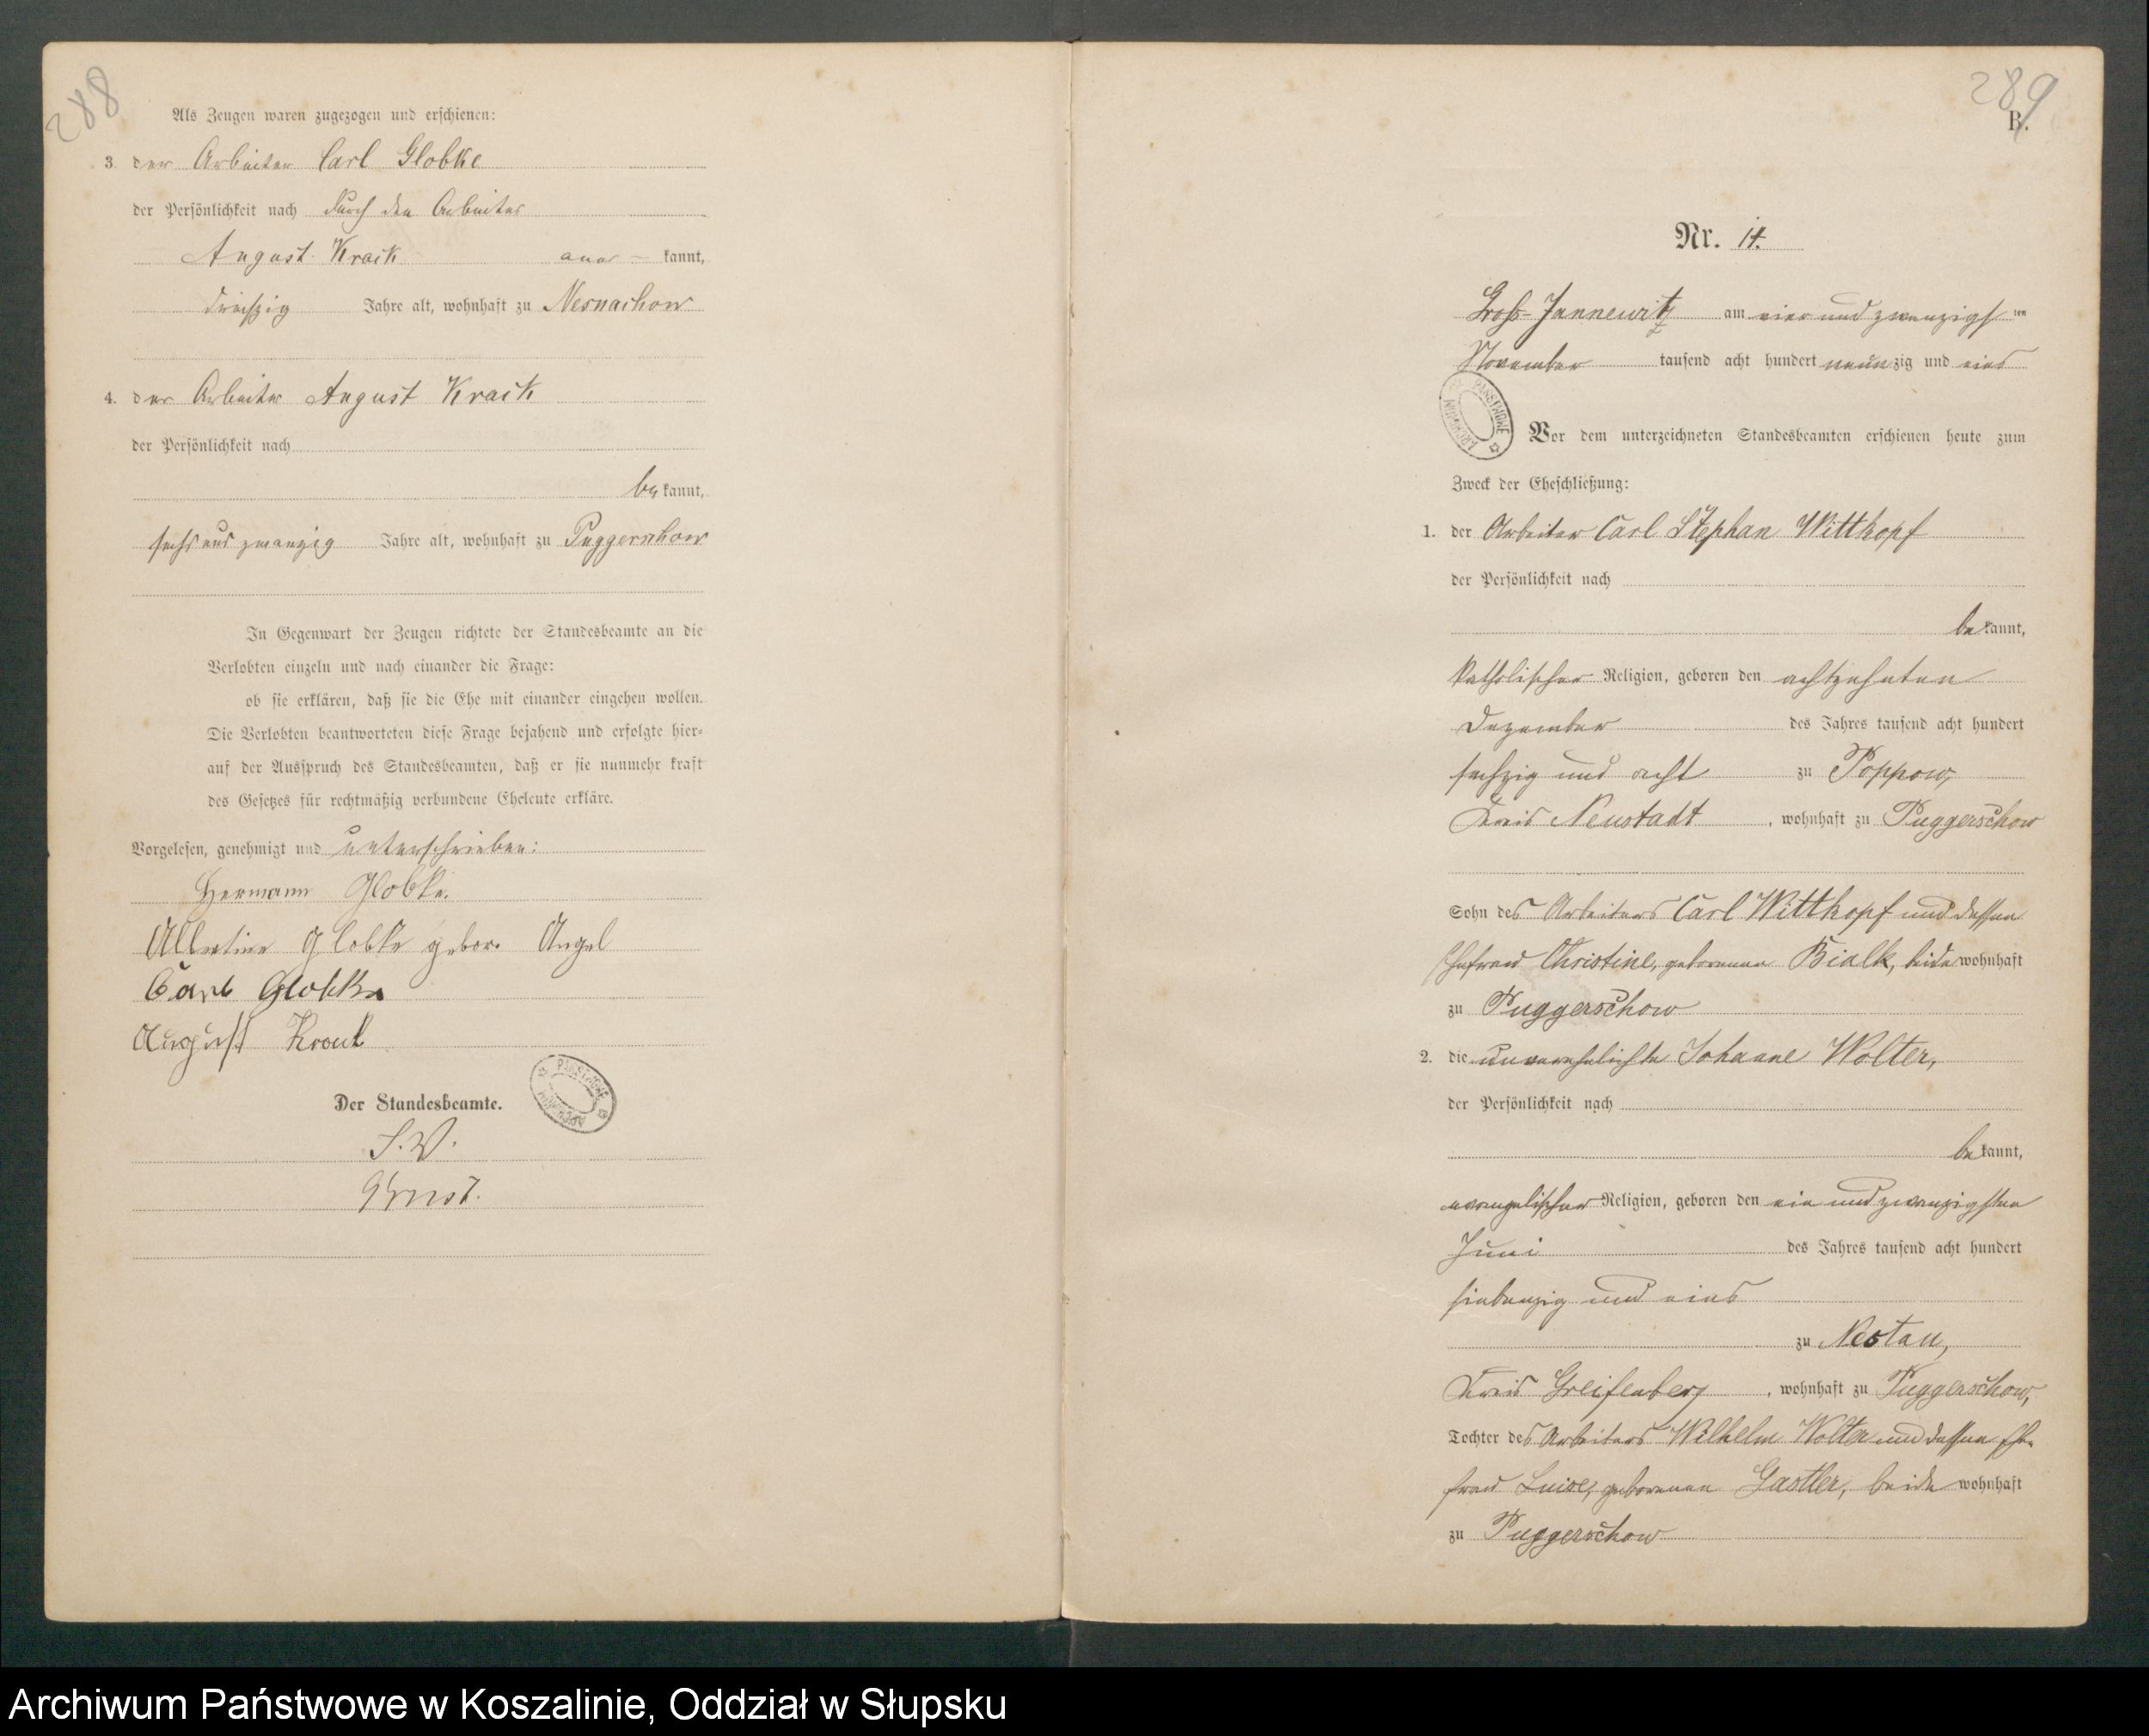 288
Als Zeugen waren zugezogen und erschienen:
3. der Arbeiter Carl Globke
der Persönlichkeit nach durch den Arbeiter
August Kraik aner- kannt,
dreißig Jahre alt, wohnhaft zu Nesnachow
4. der Arbeiter August Kraik
der Persönlichkeit nach
be kannt,
sechs und zwanzig Jahre alt, wohnhaft zu Puggerschow
In Gegenwart der Zeugen richtete der Standesbeamte an die
Verlobten einzeln und nach einander die Frage:
ob sie erklären, daß sie die Ehe mit einander eingehen wollen.
Die Verlobten beantworteten diese Frage bejahend und erfolgte hier-
auf der Ausspruch des Standesbeamten, daß er sie nunmehr kraft
des Gesetzes für rechtmäßig verbundene Eheleute erkläre.
Vorgelesen, genehmigt und unterschrieben:
Hermann Globke.
Albertine Globke gebor. Angel
Carl Globke
August
Der Standesbeamte.
ARCHIWUM PAŃSTWOWE
Ernst.
289
B.
Nr. 14.
Groß-Jannewitz am vier und zwanzigs ten
November tausend acht hundert neunzig und eins
ARCHIWUM PAŃSTWOWE
Vor dem unterzeichneten Standesbeamten erschienen heute zum
Zweck der Eheschließung:
1. der Arbeiter Carl Stephan Wittkopf
der Persönlichkeit nach
be kannt,
katholischer Religion, geboren den achtzehnten
Dezember des Jahres tausend acht hundert
sechzig und acht zu Poppow,
Kreis Neustadt, wohnhaft zu Puggerschow
Sohn des Arbeiters Carl Wittkopf und dessen
Ehefrau Christine, geborenen Bialk, beide wohnhaft
zu Puggerschow
2. die unverehelichte Johanne Wolter,
der Persönlichkeit nach
be kannt,
evangelischer Religion, geboren den ein und zwanzigsten
Juni des Jahres tausend acht hundert
siebenzig und eins
zu Nestau,
Kreis Greifenberg, wohnhaft zu Puggerschow,
Tochter des Arbeiters Wilhelm Wolter und dessen Ehe-
frau Luise, geborenen Gastler, beide wohnhaft
zu Puggerschow
Archiwum Państwowe w Koszalinie, Oddział w Słupsku